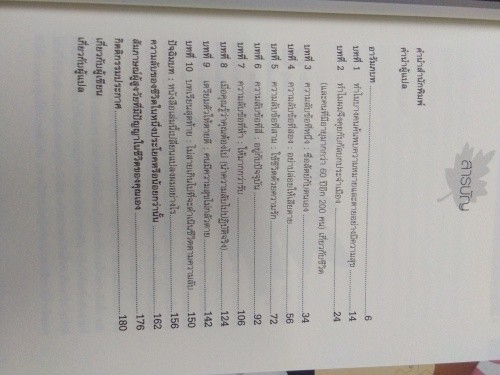 สารบัญ
คำนำสำนักพิมพ์
คำนำผู้แปล
อารัมภบท 6
บทที่ 1 ทำไมบางคนค้นพบความหมายและตายอย่างมีความสุข 14
บทที่ 2 ทำไมผมจึงคุยกับกัลบกประจำเมือง 24
(และคนที่มีอายุมากกว่า 60 ปีอีก 200 คน) เกี่ยวกับชีวิต
บทที่ 3 ความลับข้อที่หนึ่ง : ซื่อสัตย์กับตนเอง 34
บทที่ 4 ความลับข้อที่สอง : อย่าปล่อยให้เสียดาย 56
บทที่ 5 ความลับข้อที่สาม : ใช้ชีวิตด้วยความรัก 72
บทที่ 6 ความลับข้อที่สี่ : อยู่กับปัจจุบัน 92
บทที่ 7 ความลับข้อที่ห้า : ให้มากกว่ารับ 106
บทที่ 8 เมื่อคุณรู้ว่าคุณต้องไป (นำความลับไปปฏิบัติจริง) 124
บทที่ 9 เตรียมตัวให้ตายดี : คนมีความสุขไม่กลัวตาย 142
บทที่ 10 บทเรียนสุดท้าย : ไม่สายเกินไปที่จะดำเนินชีวิตตามความลับ 150
ปัจฉิมบท : หนังสือเล่มนี้เปลี่ยนแปลงผมอย่างไร 156
ความลับของชีวิตในหนึ่งประโยคหรือน้อยกว่านั้น 162
สัมภาษณ์ผู้สูงวัยที่มีปัญญาในชีวิตของคุณเอง 176
กิตติกรรมประกาศ 180
เกี่ยวกับผู้เขียน
เกี่ยวกับผู้แปล